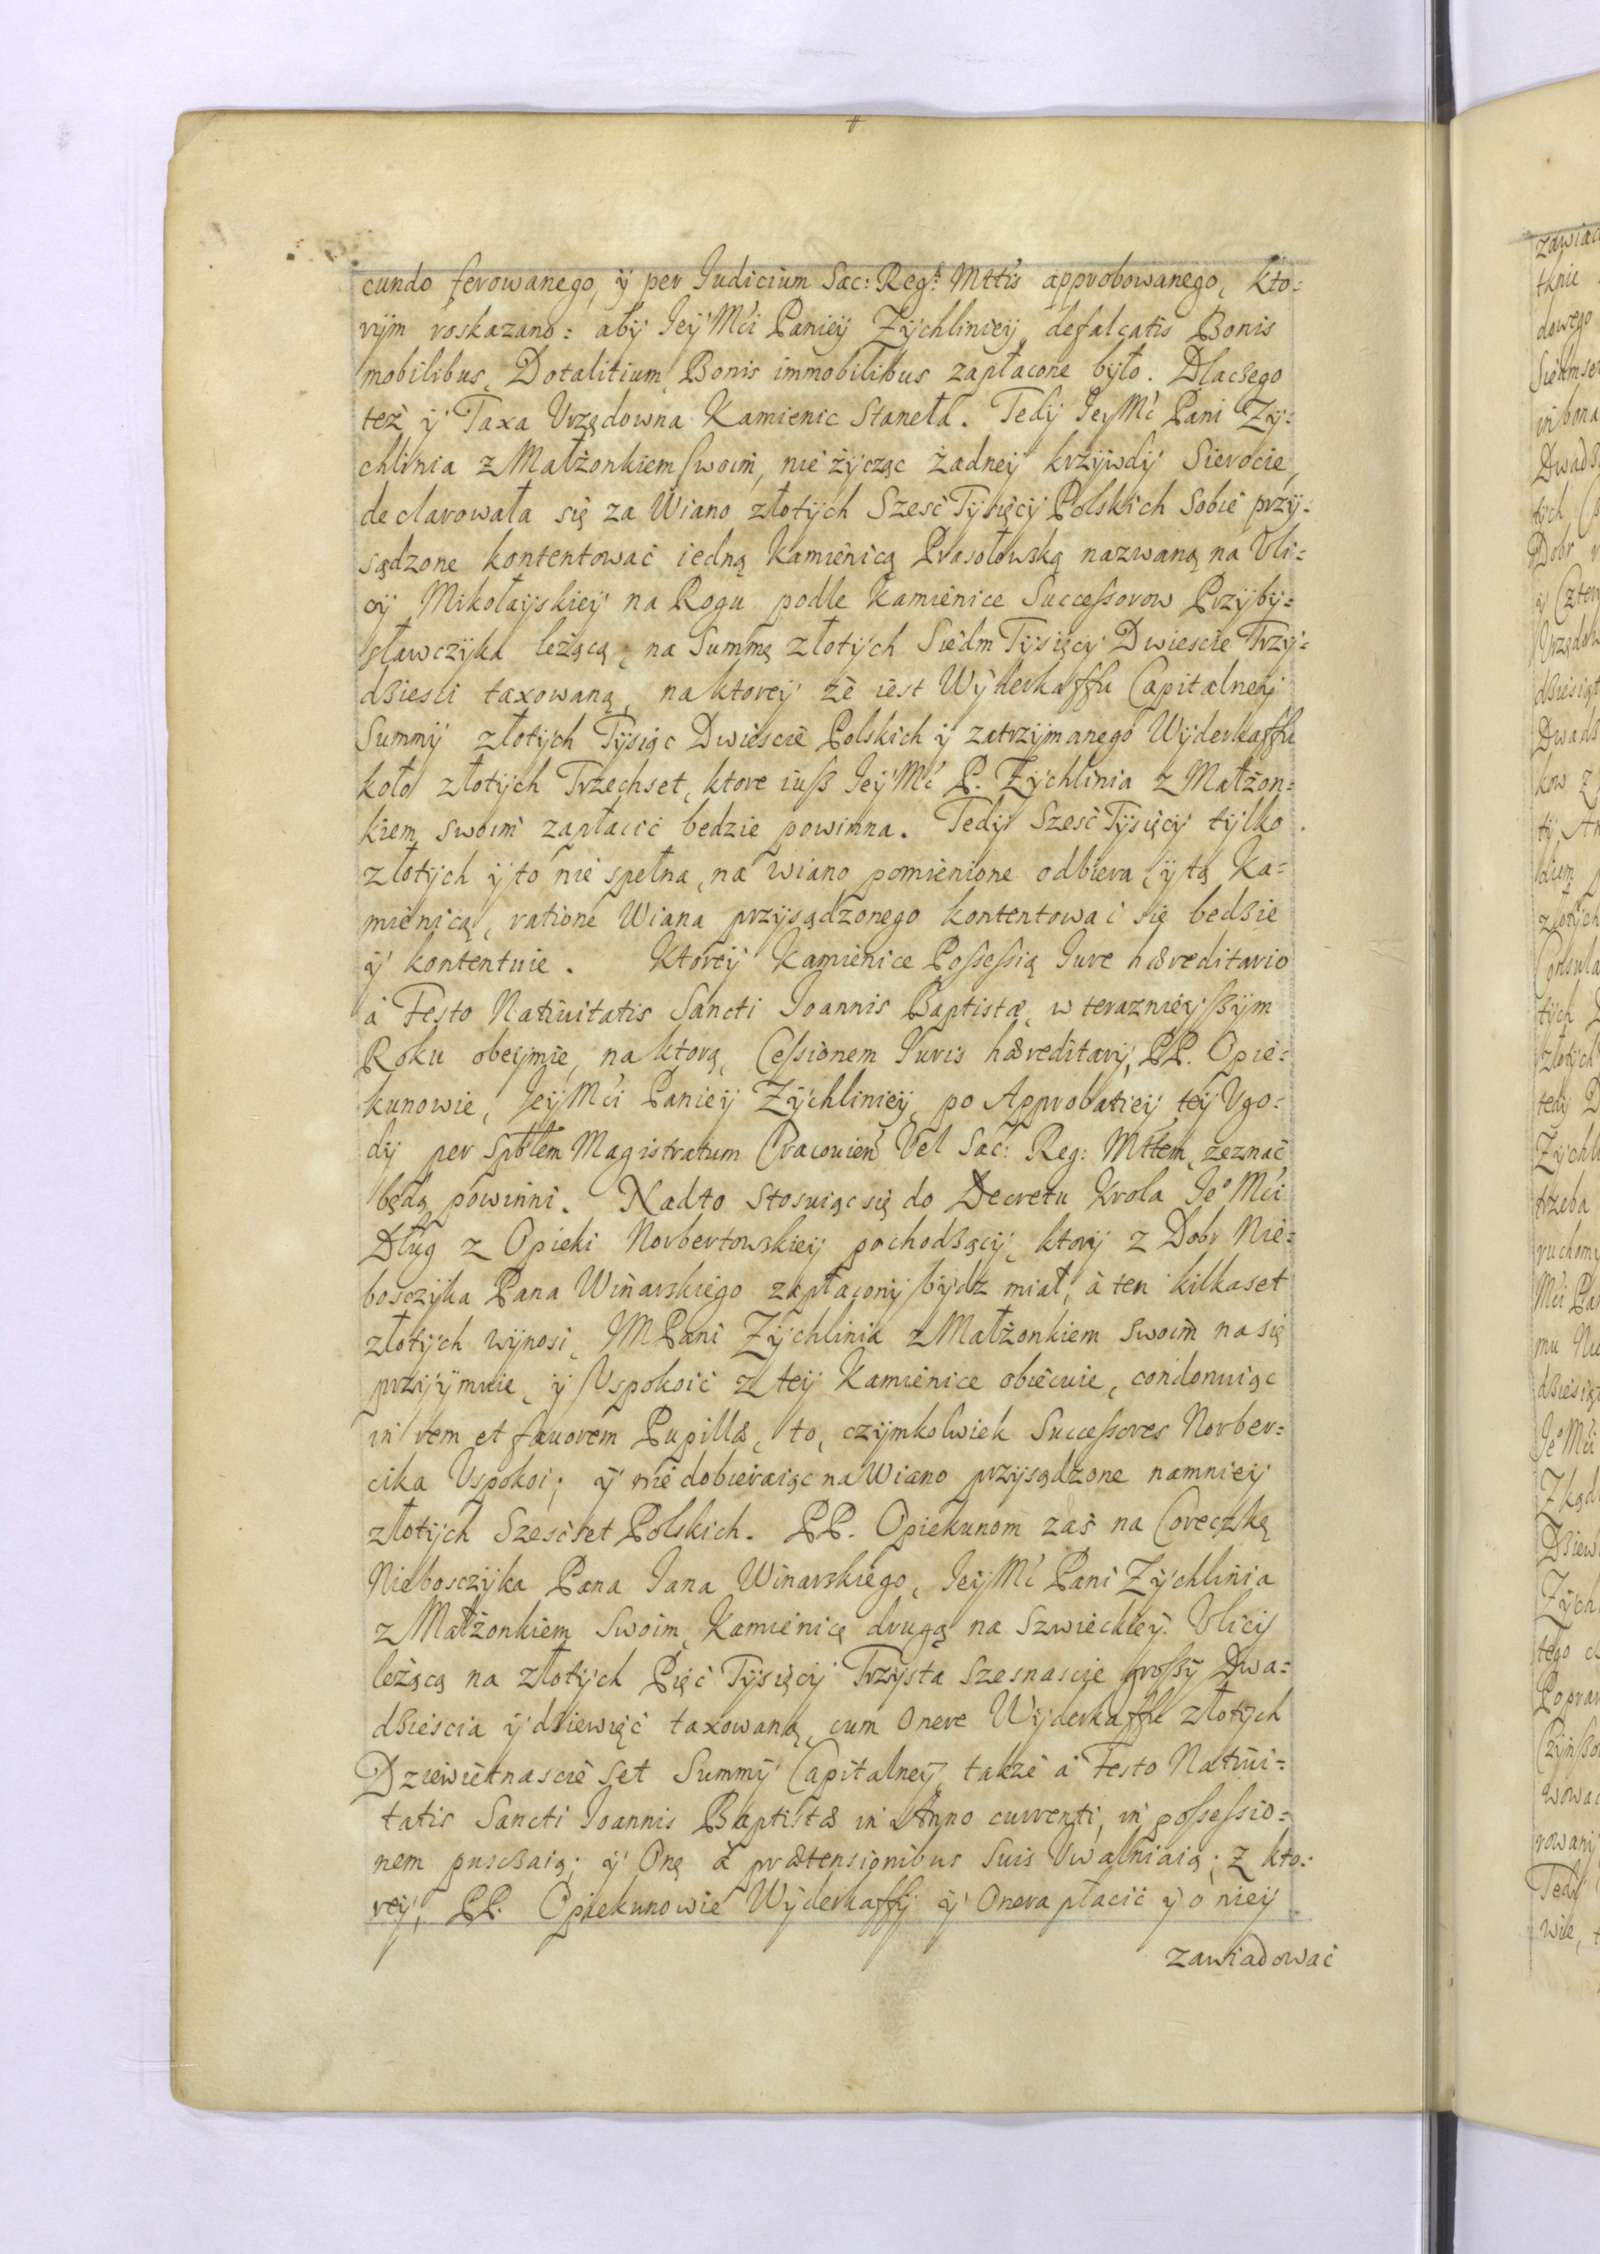 cundo ferowanego, ÿ per Iudicium Sac: Reg: Mttis approbowanego, kto=
rÿm roskazano: abÿ IeÿMći Panieÿ Zÿchlinieÿ, defalcatis Bonis
mobilibus, Dotalitium, Bonis immobilibus zapłacone bÿło. Dlaczego
też ÿ Taxa Vrzędowna Kamienic Stanęła. Tedÿ IeyMć Pani Zÿ=
chlinia z Małżonkiem swoim, nie żÿcząc żadneÿ krzÿwdÿ Sierocie,
declarowała się za Wiano złotÿch Sześć Tÿsięcÿ Polskich Sobie przÿ=
sądzone kontentować iedną Kamienicą Prasołowską nazwaną na Vli=
cÿ Mikołaÿskieÿ na Rogu podle Kamienice Successorow Przÿbÿ=
sławczÿka leżącą, na Summę złotÿch Siedm Tÿsięcÿ Dwiescie Trzÿ=
dziesci taxowaną, na ktoreÿ że iest Wÿderkaffu Capitalneÿ
Summÿ złotÿch Tÿsiąc Dwiescie Polskich ÿ zatrzÿmanego Wÿderkaffu
koło złotÿch Trzechset, ktore iuß IeÿMć P. Zÿchlinia z Małżon=
kiem swoim zapłacić bedzie powinna. Tedÿ Sześć Tÿsięcÿ tÿlko
złotÿch ÿ to nie spełna, na wiano pomienione odbiera, ÿ tą Ka=
mienicą, ratione Wiana przÿsądzonego kontentować się bedzie
ÿ kontentuie. Ktoreÿ Kamienice Possessią Iure hæreditario
à Festo Natiuitatis Sancti Ioannis Baptistæ, w teraznieÿßÿm
Roku obeÿmie, na ktorą, Cessionem Iuris hæreditarÿ, PP. Opie=
kunowie, IeÿMći Panieÿ Zÿchlinieÿ, po Approbatieÿ teÿ Vgo=
dÿ per Spblem Magistratum Cracouien Vel Sac: Reg: Mttem, zeznać
będą powinni. Nadto stosuiąc się do Decretu Krola Ieº Mći
Dług z Opieki Norbertowskieÿ pochodzącÿ, ktorÿ z Dobr Nie=
bosczÿka Pana Winarskiego zapłaconÿ bÿdź miał, à ten kilkaset
złotÿch wÿnosi, IMPani Zÿchlinia z Małżonkiem swoim na się
przÿÿmuie, ÿ Vspokoić z teÿ Kamienice obiecuie, condonuiąc
in rem et fauorem Pupillæ, to, czÿmkolwiek Successores Norber=
cika Vspokoi; ÿ nie dobieraiąc na Wiano przÿsądzone namnieÿ
złotÿch Sześćset Polskich. PP. Opiekunom zaś na Coreczkę
Niebosczÿka Pana Iana Winarskiego, IeÿMć Pani Zÿchlinia
z Małżonkiem swoim, Kamienicę drugą na Szwieckieÿ Vlicÿ
leżącą na złotÿch Pięć Tÿsięcÿ Trzÿsta szesnascie großÿ Dwa=
dziescia ÿ dziewięć taxowaną, cum onere Wÿderkaffu złotÿch
Dziewiętnascie set Summÿ Capitalneÿ, także à Festo Natiui=
tatis Sancti Ioannis Baptistæ in Anno currenti, in possessio=
nem pusczaią; ÿ Onę à prætensionibus suis Vwalniaią; z kto=
reÿ, PP. Opiekunowie Wÿderkaffÿ ÿ Onera płacić ÿ o nieÿ
zawiadować